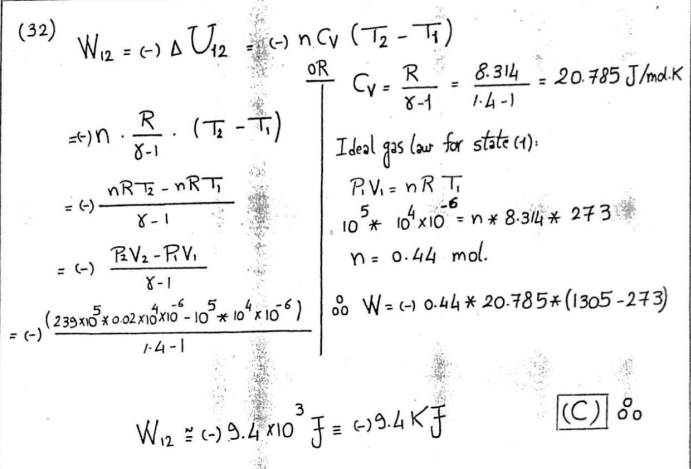 (32)
W₁₂ = (-) Δ U₁₂ = (-) n Cᵥ (T₂ - T₁)
= (-) n · R/(γ-1) · (T₂ - T₁)
= (-) (nRT₂ - nRT₁)/(γ-1)
= (-) (P₂V₂ - P₁V₁)/(γ-1)
= (-) (239×10⁵ * 0.02×10⁴×10⁻⁶ - 10⁵ * 10⁴×10⁻⁶)/(1.4-1)
OR
Cᵥ = R/(γ-1) = 8.314/(1.4-1) = 20.785 J/mol.K
Ideal gas law for state (1):
P₁V₁ = nR T₁
10⁵ * 10⁴×10⁻⁶ = n * 8.314 * 273
n = 0.44 mol.
∴ W = (-) 0.44 * 20.785 * (1305 - 273)
W₁₂ ≅ (-) 9.4 ×10³ J ≡ (-) 9.4 KJ
(C)